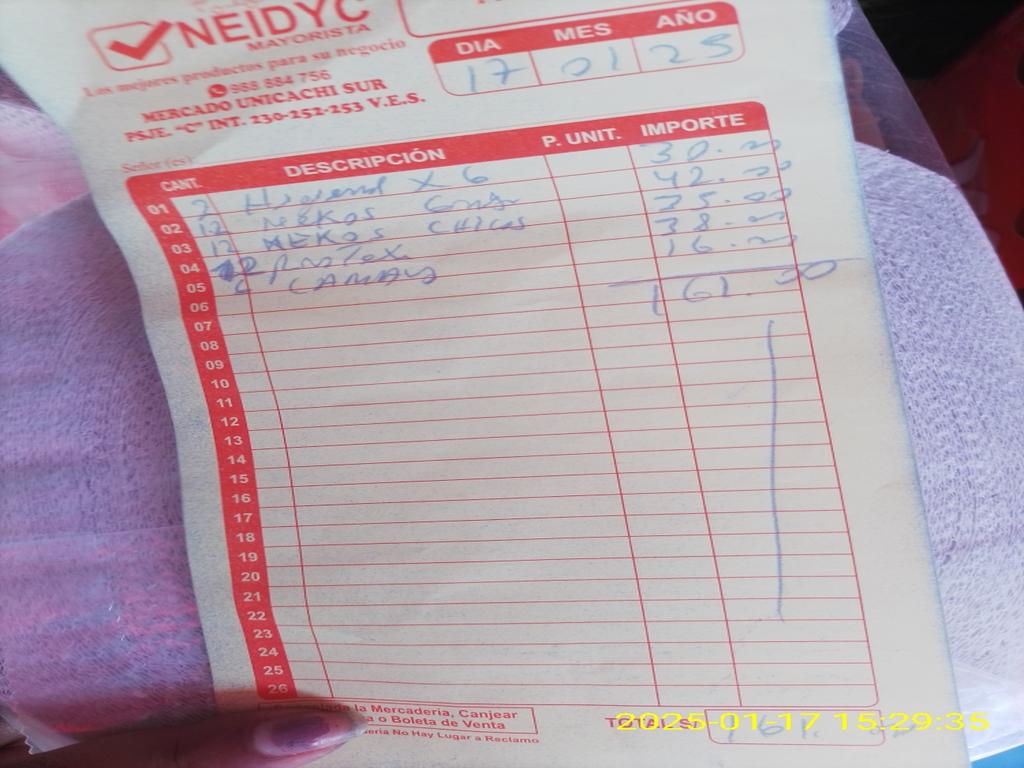 NEIDYC
MAYORISTA
Los mejores productos para su negocio
988 884 756
MERCADO UNICACHI SUR
PSJE. "C" INT. 230-252-253 V.E.S.
DIA MES AÑO
17 01 25
Señor (es)
CANT. DESCRIPCIÓN P. UNIT. IMPORTE
01 2 X 6 30.00
02 12 NEKOS 42.00
03 12 NEKOS CHICOS 35.00
04 12 protex 38.00
05 6 CAMAY 16.00
06 161.00
07
08
09
10
11
12
13
14
15
16
17
18
19
20
21
22
23
24
25
26
la Mercadería, Canjear
o Boleta de Venta
No Hay Lugar a Reclamo
TOTAL S/ 161.00
2025-01-17 15:29:35